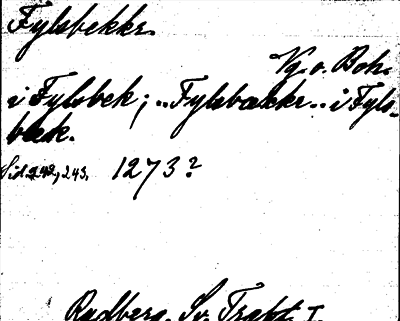 Fylsbekkr.
Vg. o. Boh.
i Fylsbek; "Fylsbækkr" i Fyls-
bæk.
Sid. 242, 243. 1273?
Rydberg, Sv. Trakt. I.